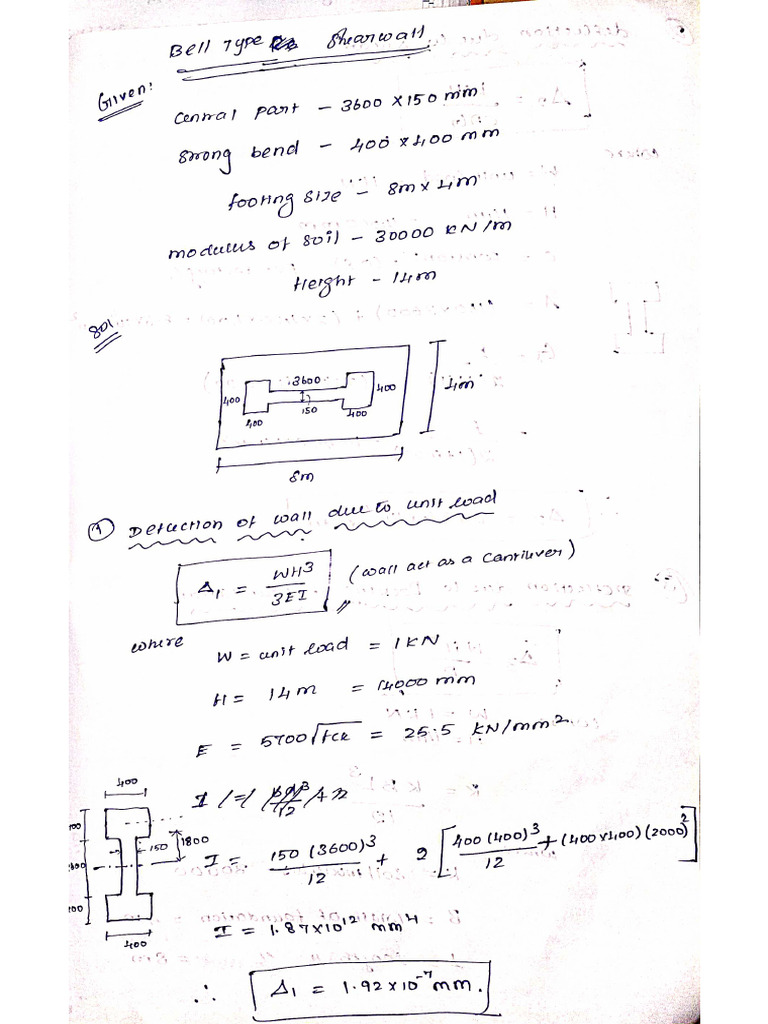 Bell Type Shearwall
Given:
Central part – 3600 X 150 mm
Strong bend – 400 X 400 mm
footing size – 8m x 4m
modulus of soil – 30000 KN/m
Height – 14m
Sol
3600
400
400
150
400
400
4m
8m
① Deflection of wall due to unit load
Δ₁ = WH³/3EI (wall act as a cantilever)
where
W = unit load = 1 KN
H = 14m = 14000 mm
E = 5700√fck = 25.5 KN/mm²
400
150
1800
400
I = 150 (3600)³/12 + 2 [400 (400)³/12 + (400x400) (2000)²]
I = 1.87x10¹² mm⁴
∴ Δ₁ = 1.92 x 10⁻⁷ mm.